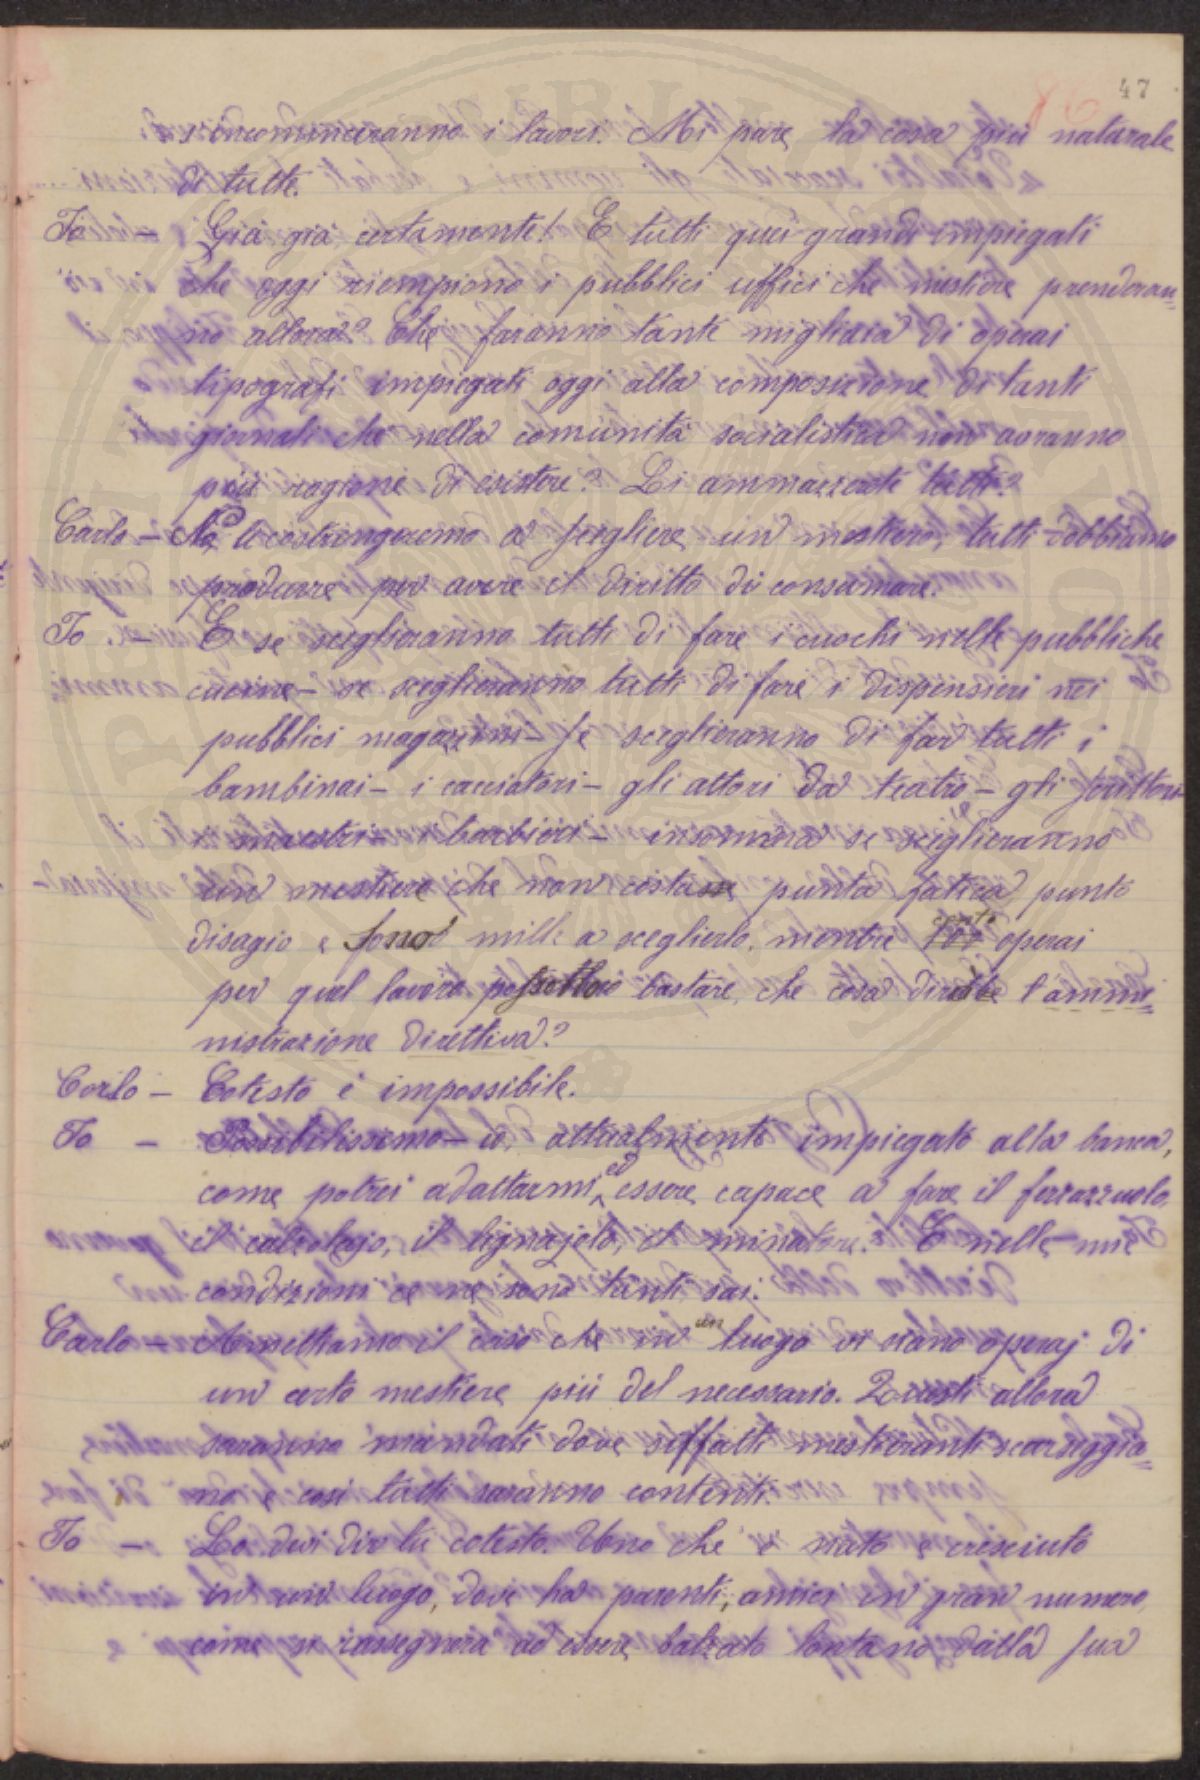 47
86
s'incomincieranno i lavori. Mi pare la cosa più naturale
di tutte.
Io — Già già certamente! E tutti quei grandi impiegati
che oggi riempiono i pubblici uffici che mestiere prenderan=
no allora? Che faranno tante migliaia di operai
tipografi impiegati oggi alla composizione di tanti
giornali che nella comunità socialistica non avranno
più ragione di esistere? Li ammazzerete tutti?
Carlo — No, li costringeremo a scegliere un mestiere, tutti dobbiamo
produrre per avere il diritto di consumare.
Io — E se sceglieranno tutti di fare i cuochi nelle pubbliche
cucine — se sceglieranno tutti di fare i dispensieri nei
pubblici magazzini — se sceglieranno di far tutti i
bambinai — i cacciatori — gli attori da teatro — gli scrittori
i maestri — i barbieri — insomma se sceglieranno
un mestiere che non costasse punta fatica, punto
disagio e sono mille a sceglierlo, mentre cento operai
per quel lavoro potrebbero bastare, che cosa direbbe l'ammi=
nistrazione direttiva?
Carlo — Cotesto è impossibile.
Io — Possibilissimo — io, attualmente impiegato alla banca,
come potrei adattarmi ed essere capace a fare il ferrazzuolo,
il calzolajo, il lignajolo, il minatore. E nelle mie
condizioni ce ne sono tanti sai.
Carlo — Ammettiamo il caso che in un luogo vi siano operaj di
un certo mestiere più del necessario. Questi allora
saranno mandati dove siffatti mestieranti scarseggia=
no e così tutti saranno contenti.
Io — Lo dici tu cotesto. Uno che è nato e cresciuto
in un luogo, dove ha parenti, amici in gran numero,
come si rassegnerà ad essere balzato lontano dalla sua